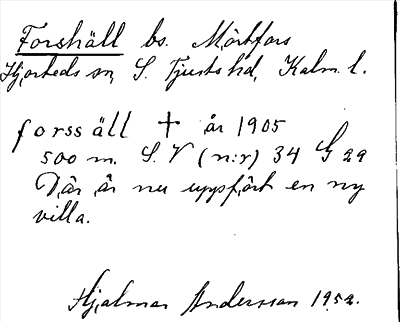 Forshäll bs. Mörtfors
Hjorteds sn, S. Tjusts hd, Kalm. l.
forssäll † år 1905
500 m. S. V (n:r) 34 G 29
Där är nu uppfört en ny
villa.
Hjalmar Andersson 1952.